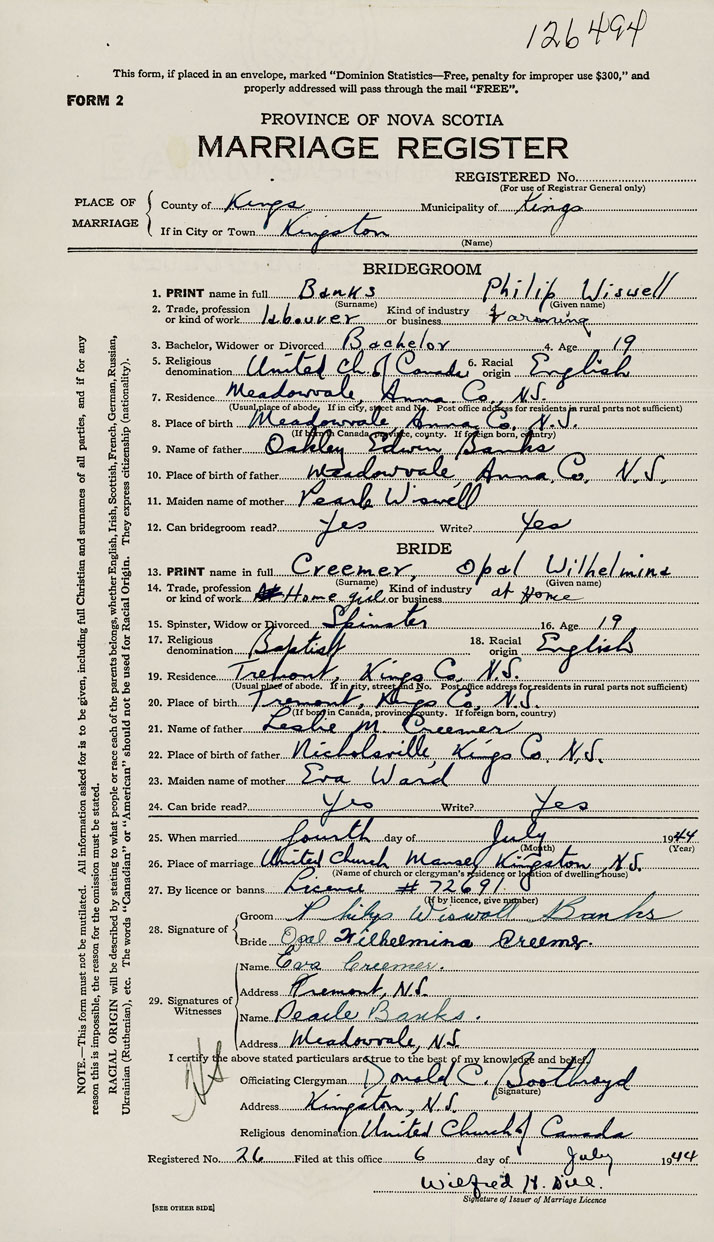 126494
This form, if placed in an envelope, marked "Dominion Statistics—Free, penalty for improper use $300," and
properly addressed will pass through the mail "FREE".
FORM 2
PROVINCE OF NOVA SCOTIA
MARRIAGE REGISTER
REGISTERED No.
(For use of Registrar General only)
PLACE OF MARRIAGE
County of Kings Municipality of Kings
If in City or Town Kingston
(Name)
BRIDEGROOM
1. PRINT name in full Banks Philip Wiswell
(Surname) (Given name)
2. Trade, profession or kind of work labourer Kind of industry or business Farming
3. Bachelor, Widower or Divorced Bachelor 4. Age 19
5. Religious denomination United Ch. of Canada 6. Racial origin English
7. Residence Meadowvale, Anna. Co., N.S.
(Usual place of abode. If in city, street and No. Post office address for residents in rural parts not sufficient)
8. Place of birth Meadowvale, Anna. Co. N.S.
(If born in Canada, province, county. If foreign born, country)
9. Name of father Oakley Edwin Banks
10. Place of birth of father Meadowvale, Anna. Co. N.S.
11. Maiden name of mother Pearle Wiswell
12. Can bridegroom read? Yes Write? Yes
BRIDE
13. PRINT name in full Creemer, Opal Wilhelmina
(Surname) (Given name)
14. Trade, profession or kind of work Home girl Kind of industry or business at Home
15. Spinster, Widow or Divorced Spinster 16. Age 19
17. Religious denomination Baptist 18. Racial origin English
19. Residence Tremont, Kings Co. N.S.
(Usual place of abode. If in city, street and No. Post office address for residents in rural parts not sufficient)
20. Place of birth Tremont, Kings Co., N.S.
(If born in Canada, province, county. If foreign born, country)
21. Name of father Leslie M. Creemer
22. Place of birth of father Nicholsville, Kings Co. N.S.
23. Maiden name of mother Eva Ward
24. Can bride read? Yes Write? Yes
25. When married fourth day of July 1944
(Month) (Year)
26. Place of marriage United Church Manse, Kingston N.S.
(Name of church or clergyman's residence or location of dwelling house)
27. By licence or banns Licence # 72691
(If by licence, give number)
28. Signature of
Groom Philip Wiswell Banks
Bride Opal Wilhelmina Creemer.
29. Signatures of Witnesses
Name Eva Creemer.
Address Tremont, N.S.
Name Pearle Banks.
Address Meadowvale, N.S.
I certify the above stated particulars are true to the best of my knowledge and belief.
Officiating Clergyman Donald C. Bootbroyd
(Signature)
Address Kingston, N.S.
Religious denomination United Church of Canada
Registered No. 26 Filed at this office 6 day of July 1944
Wilfred H. Dill.
Signature of Issuer of Marriage Licence
[SEE OTHER SIDE]
NOTE.—This form must not be mutilated. All information asked for is to be given, including full Christian and surnames of all parties, and if for any
reason this is impossible, the reason for the omission must be stated.
RACIAL ORIGIN will be described by stating to what people or race each of the parents belongs, whether English, Irish, Scottish, French, German, Russian,
Ukrainian (Ruthenian), etc. The words "Canadian" or "American" should not be used for Racial Origin. They express citizenship (nationality).